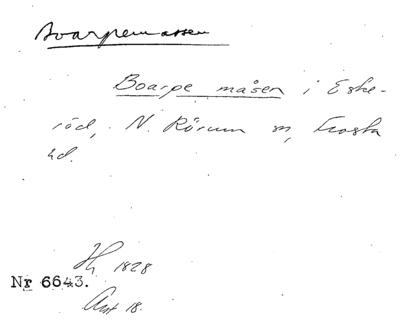 Boarpemassen
Boarpe måsen i Eske-
röd, N. Rörum sn, Frosta
hd.
Hy 1828
Nr 6643.
Ant 18.